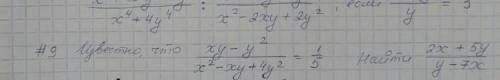 x⁴+4y⁴ : x²-2xy+2y² , если y = 3
#9 Известно, что (xy-y²)/(x²-xy+4y²) = 1/5 Найти (2x+5y)/(y-7x)